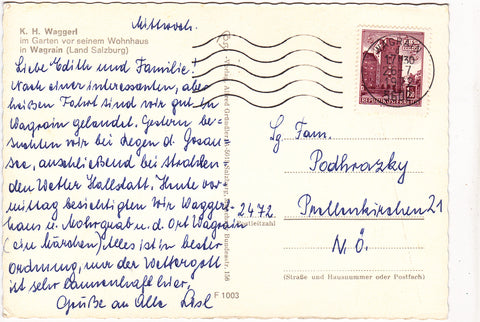 Mittwoch.
K. H. Waggerl
im Garten vor seinem Wohnhaus
in Wagrain (Land Salzburg)
Liebe Edith und Familie!
Nach einer interessanten, aber
heißen Fahrt sind wir gut in
Wagrain gelandet. Gestern be-
suchten wir bei Regen d. Gosau-
see, anschließend bei strahlen-
den Wetter Hallstatt. Heute vor-
mittag besichtigten wir Waggerl-
haus u. Mohrgrab u. d. Ort Wagrain
(ein Märchen) Alles ist in bester
Ordnung, nur der Wettergott
ist sehr launenhaft hier.
Grüße an Alle Lisl
F 1003
REPUBLIK ÖSTERREICH
Sg. Fam.
Podhrazky
2472 Prellenkirchen 21
Postleitzahl
N.Ö.
(Straße und Hausnummer oder Postfach)